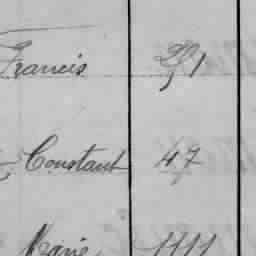 Francis
Constant 47
Marie 1111